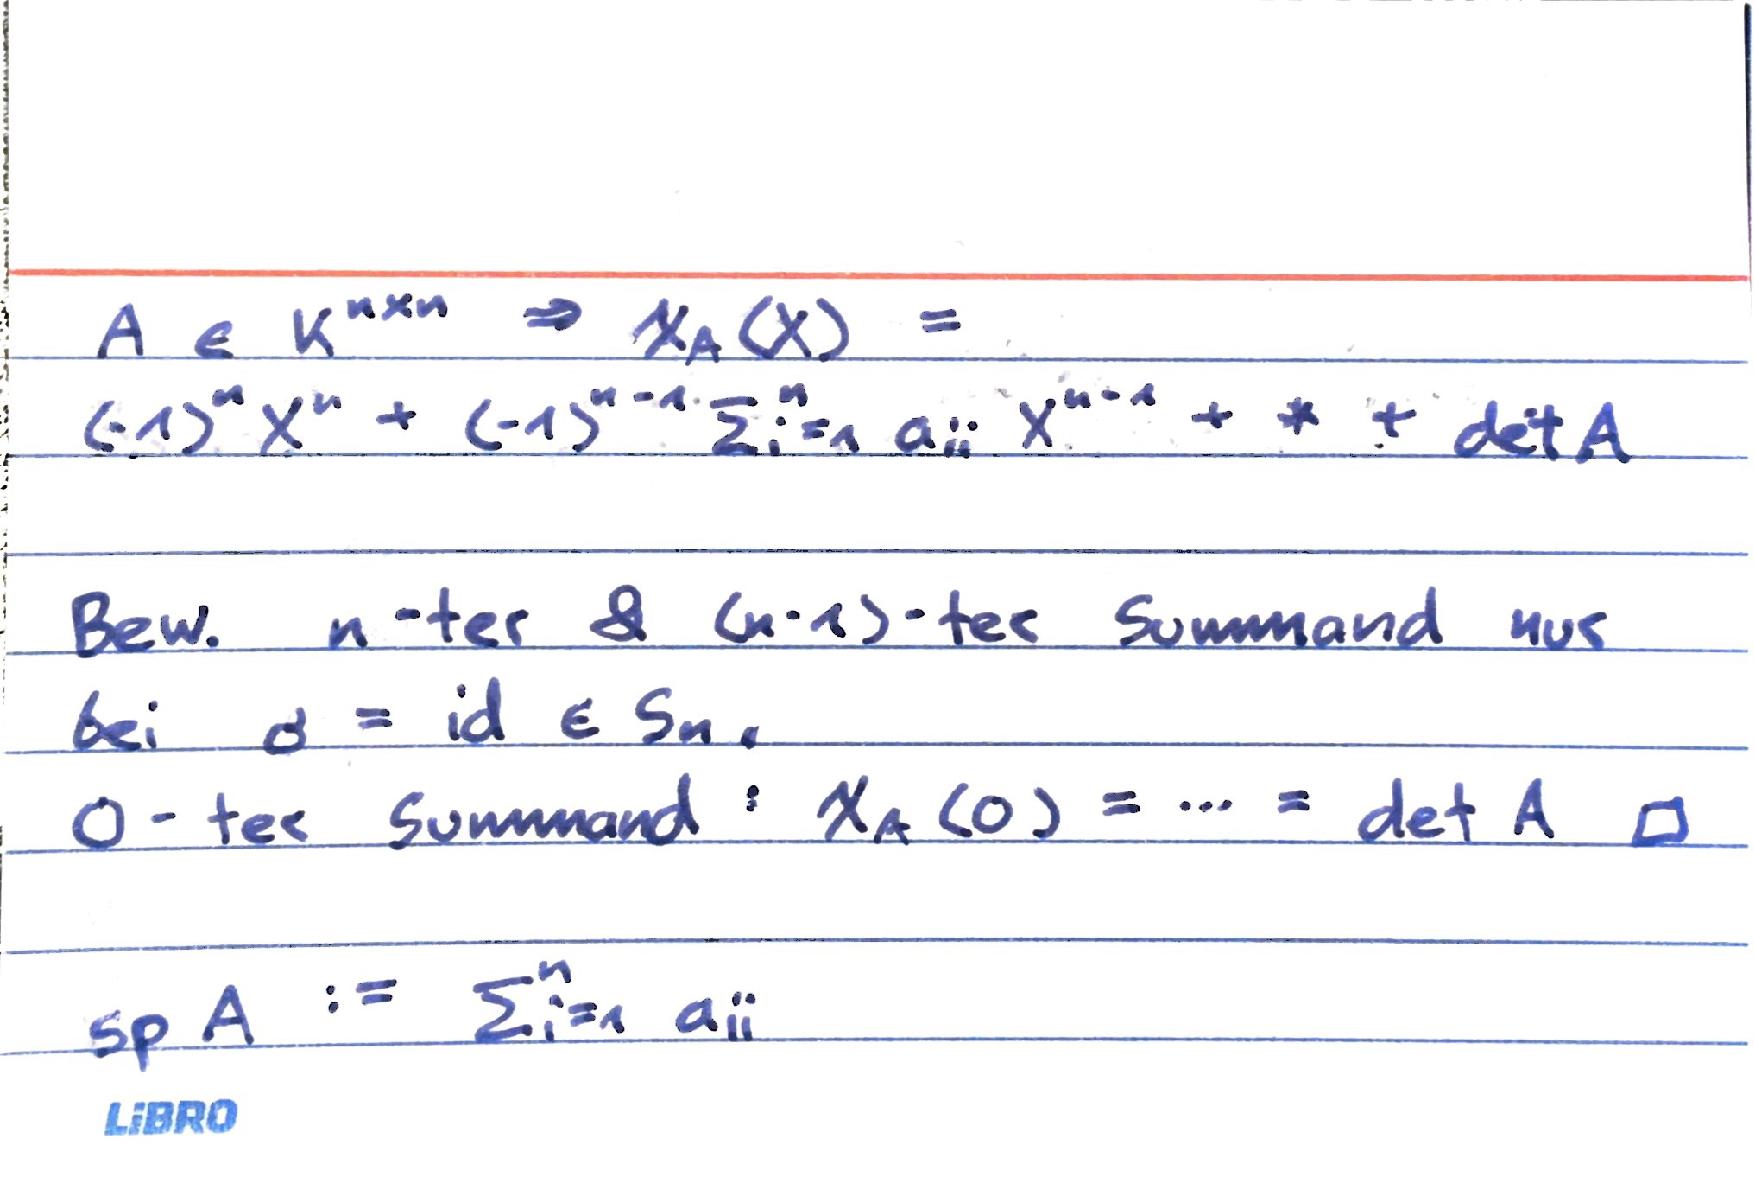 A ∈ K^{n×n} ⇒ χ_A(X) =
(-1)^n X^n + (-1)^{n-1} Σ_{i=1}^n a_{ii} X^{n-1} + * + det A
Bew. n-ter & (n-1)-ter Summand nur
bei σ = id ∈ S_n.
0-ter Summand: χ_A(0) = ... = det A □
sp A := Σ_{i=1}^n a_{ii}
LiBRO